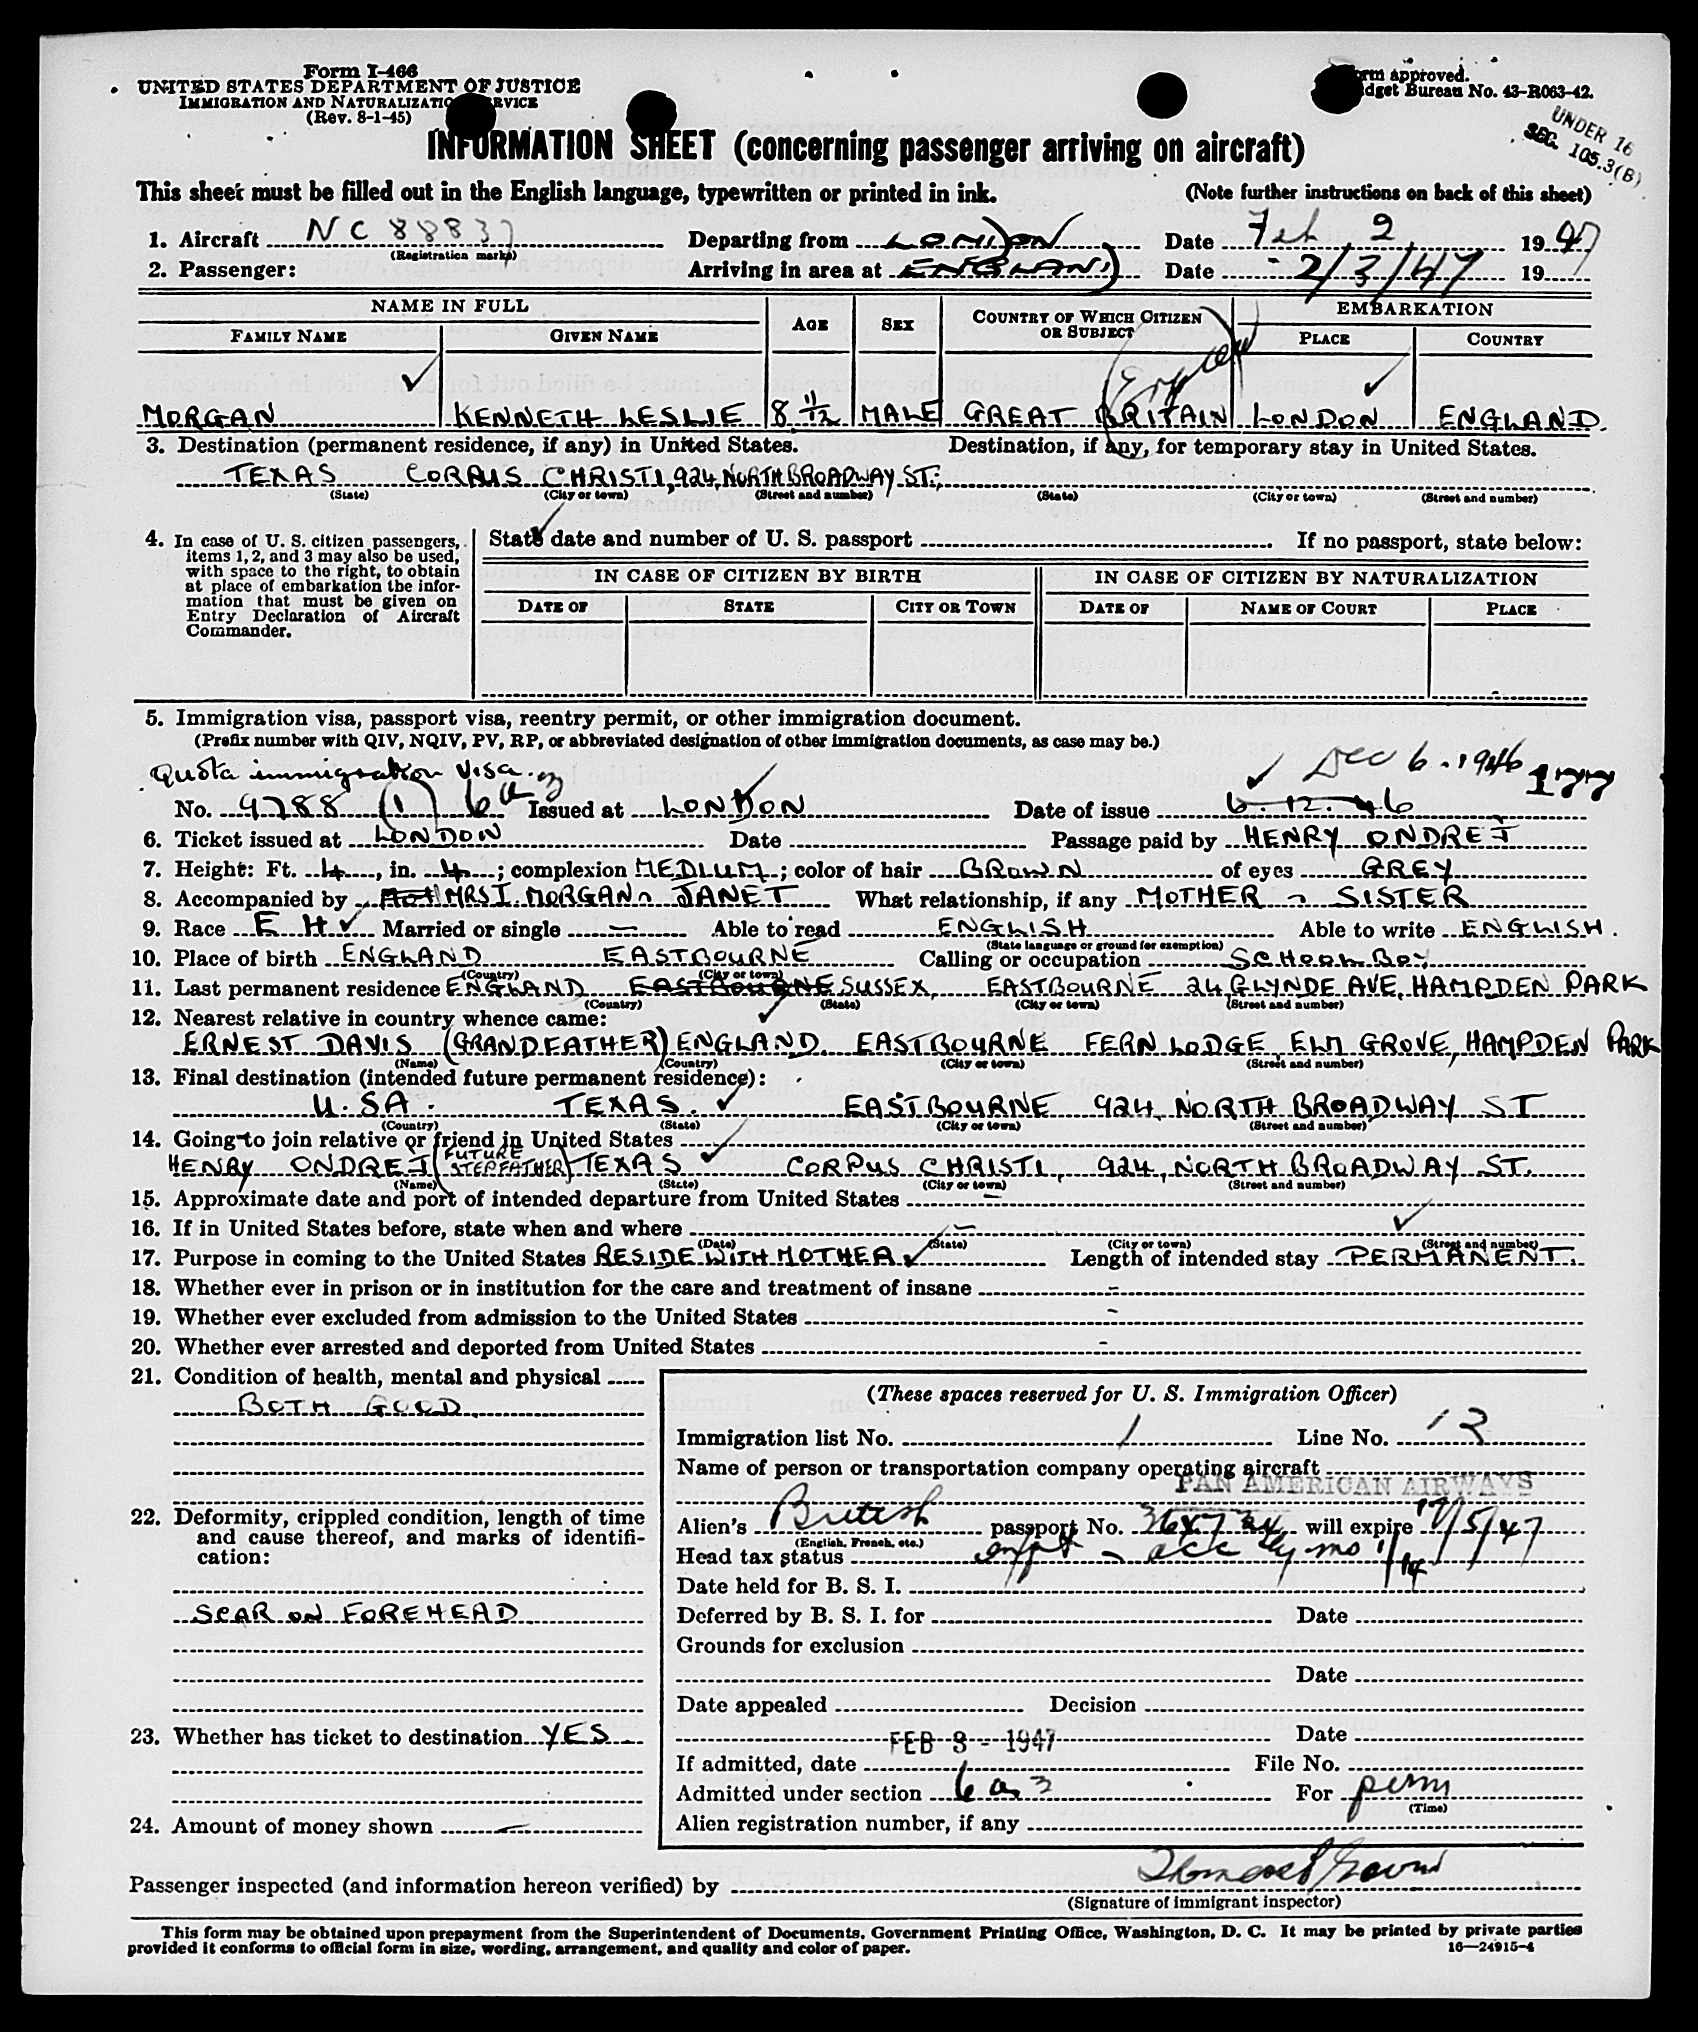 Form I-466
UNITED STATES DEPARTMENT OF JUSTICE
IMMIGRATION AND NATURALIZATION SERVICE
(Rev. 8-1-45)
Form approved.
Budget Bureau No. 43-R063-42.
UNDER 16
SEC. 105.3(B)
INFORMATION SHEET (concerning passenger arriving on aircraft)
This sheet must be filled out in the English language, typewritten or printed in ink. (Note further instructions on back of this sheet)
1. Aircraft NC 88837 Departing from LONDON Date Feb 2 1947
(Registration marks)
2. Passenger: Arriving in area at ENGLAND Date 2/3/47 19
NAME IN FULL AGE SEX COUNTRY OF WHICH CITIZEN OR SUBJECT EMBARKATION
FAMILY NAME GIVEN NAME PLACE COUNTRY
MORGAN KENNETH LESLIE 8 11/12 MALE GREAT BRITAIN LONDON ENGLAND.
3. Destination (permanent residence, if any) in United States. Destination, if any, for temporary stay in United States.
TEXAS CORPUS CHRISTI, 924, NORTH BROADWAY ST.
(State) (City or town) (Street and number) (State) (City or town) (Street and number)
4. In case of U. S. citizen passengers, items 1, 2, and 3 may also be used, with space to the right, to obtain at place of embarkation the information that must be given on Entry Declaration of Aircraft Commander.
State date and number of U. S. passport If no passport, state below:
IN CASE OF CITIZEN BY BIRTH IN CASE OF CITIZEN BY NATURALIZATION
DATE OF STATE CITY OR TOWN DATE OF NAME OF COURT PLACE
5. Immigration visa, passport visa, reentry permit, or other immigration document.
(Prefix number with QIV, NQIV, PV, RP, or abbreviated designation of other immigration documents, as case may be.)
Quota immigration visa. Dec 6 - 1946 177
No. 9788 (1) 6 a 3 Issued at LONDON Date of issue 6.12.46
6. Ticket issued at LONDON Date Passage paid by HENRY ONDREJ
7. Height: Ft. 4, in. 4; complexion MEDIUM; color of hair BROWN of eyes GREY
8. Accompanied by MRS I. MORGAN JANET What relationship, if any MOTHER SISTER
9. Race E H Married or single — Able to read ENGLISH Able to write ENGLISH.
(State language or ground for exemption)
10. Place of birth ENGLAND EASTBOURNE Calling or occupation SCHOOL BOY
(Country) (City or town)
11. Last permanent residence ENGLAND EASTBOURNE SUSSEX, EASTBOURNE 24, GLYNDE AVE, HAMPDEN PARK
(Country) (State) (City or town) (Street and number)
12. Nearest relative in country whence came:
ERNEST DAVIS (GRANDFATHER) ENGLAND EASTBOURNE FERN LODGE, ELM GROVE, HAMPDEN PARK
(Name) (Country) (City or town) (Street and number)
13. Final destination (intended future permanent residence):
U.SA. TEXAS. EASTBOURNE 924, NORTH BROADWAY ST
(Country) (State) (City or town) (Street and number)
14. Going to join relative or friend in United States
HENRY ONDREJ (FUTURE STEPFATHER) TEXAS CORPUS CHRISTI, 924, NORTH BROADWAY ST.
(Name) (State) (City or town) (Street and number)
15. Approximate date and port of intended departure from United States —
16. If in United States before, state when and where —
(Date) (State) (City or town) (Street and number)
17. Purpose in coming to the United States RESIDE WITH MOTHER Length of intended stay PERMANENT.
18. Whether ever in prison or in institution for the care and treatment of insane -
19. Whether ever excluded from admission to the United States -
20. Whether ever arrested and deported from United States -
21. Condition of health, mental and physical
BOTH GOOD
22. Deformity, crippled condition, length of time and cause thereof, and marks of identification:
SCAR ON FOREHEAD
23. Whether has ticket to destination YES
24. Amount of money shown —
(These spaces reserved for U. S. Immigration Officer)
Immigration list No. 1 Line No. 13
Name of person or transportation company operating aircraft
PAN AMERICAN AIRWAYS
Alien's British passport No. will expire 17/5/47
(English, French, etc.)
Head tax status
Date held for B. S. I.
Deferred by B. S. I. for Date
Grounds for exclusion
Date
Date appealed Decision
Date
FEB 3 - 1947
If admitted, date File No.
Admitted under section 6 a 3 For perm
(Time)
Alien registration number, if any
Passenger inspected (and information hereon verified) by
(Signature of immigrant inspector)
This form may be obtained upon prepayment from the Superintendent of Documents, Government Printing Office, Washington, D. C. It may be printed by private parties
provided it conforms to official form in size, wording, arrangement, and quality and color of paper. 16—24915-4